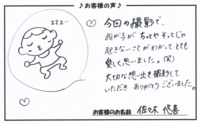 ♪お客様の声♪
zzz…
今回の撮影で、
我が子が ちょっとやそっとじゃ
起きないことがわかって とても
愛しく思いました。(笑)
大切な想い出を撮影して
いただき ありがとうございました。
お客様のお名前 佐々木